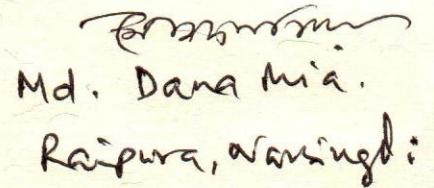 Md. Dana Mia.
Raipura, Narsingdi